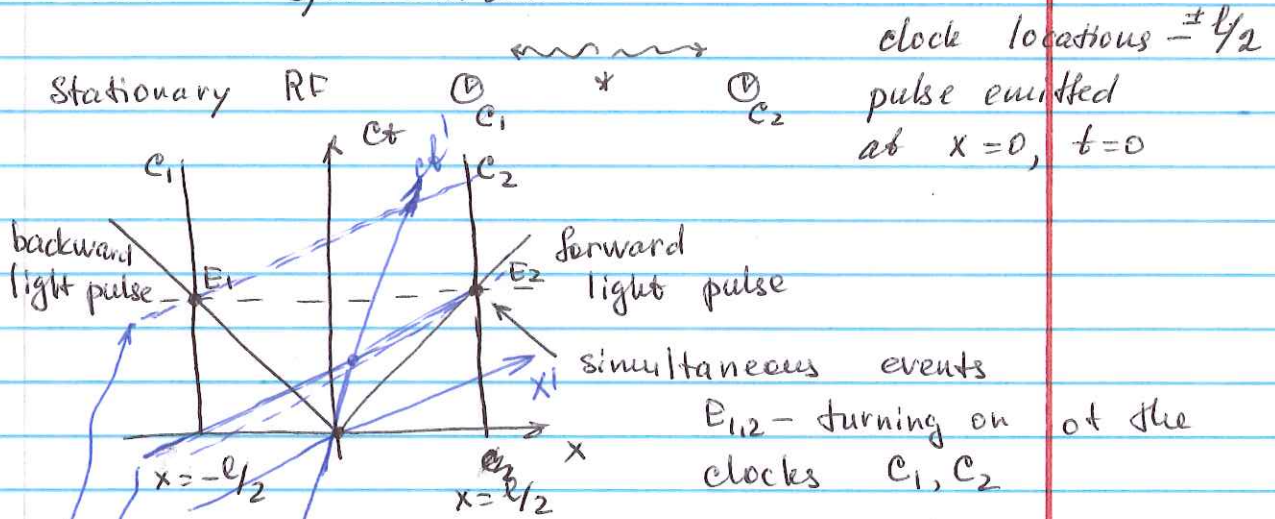 clock locations ± l/2
Stationary RF C₁ * C₂ pulse emitted
at x = 0, t = 0
ct
ct'
C₁
C₂
backward
light pulse
E₁
E₂
forward
light pulse
simultaneous events
x'
E₁,₂ - turning on of the
clocks C₁, C₂
x
x = -l/2
x = l/2